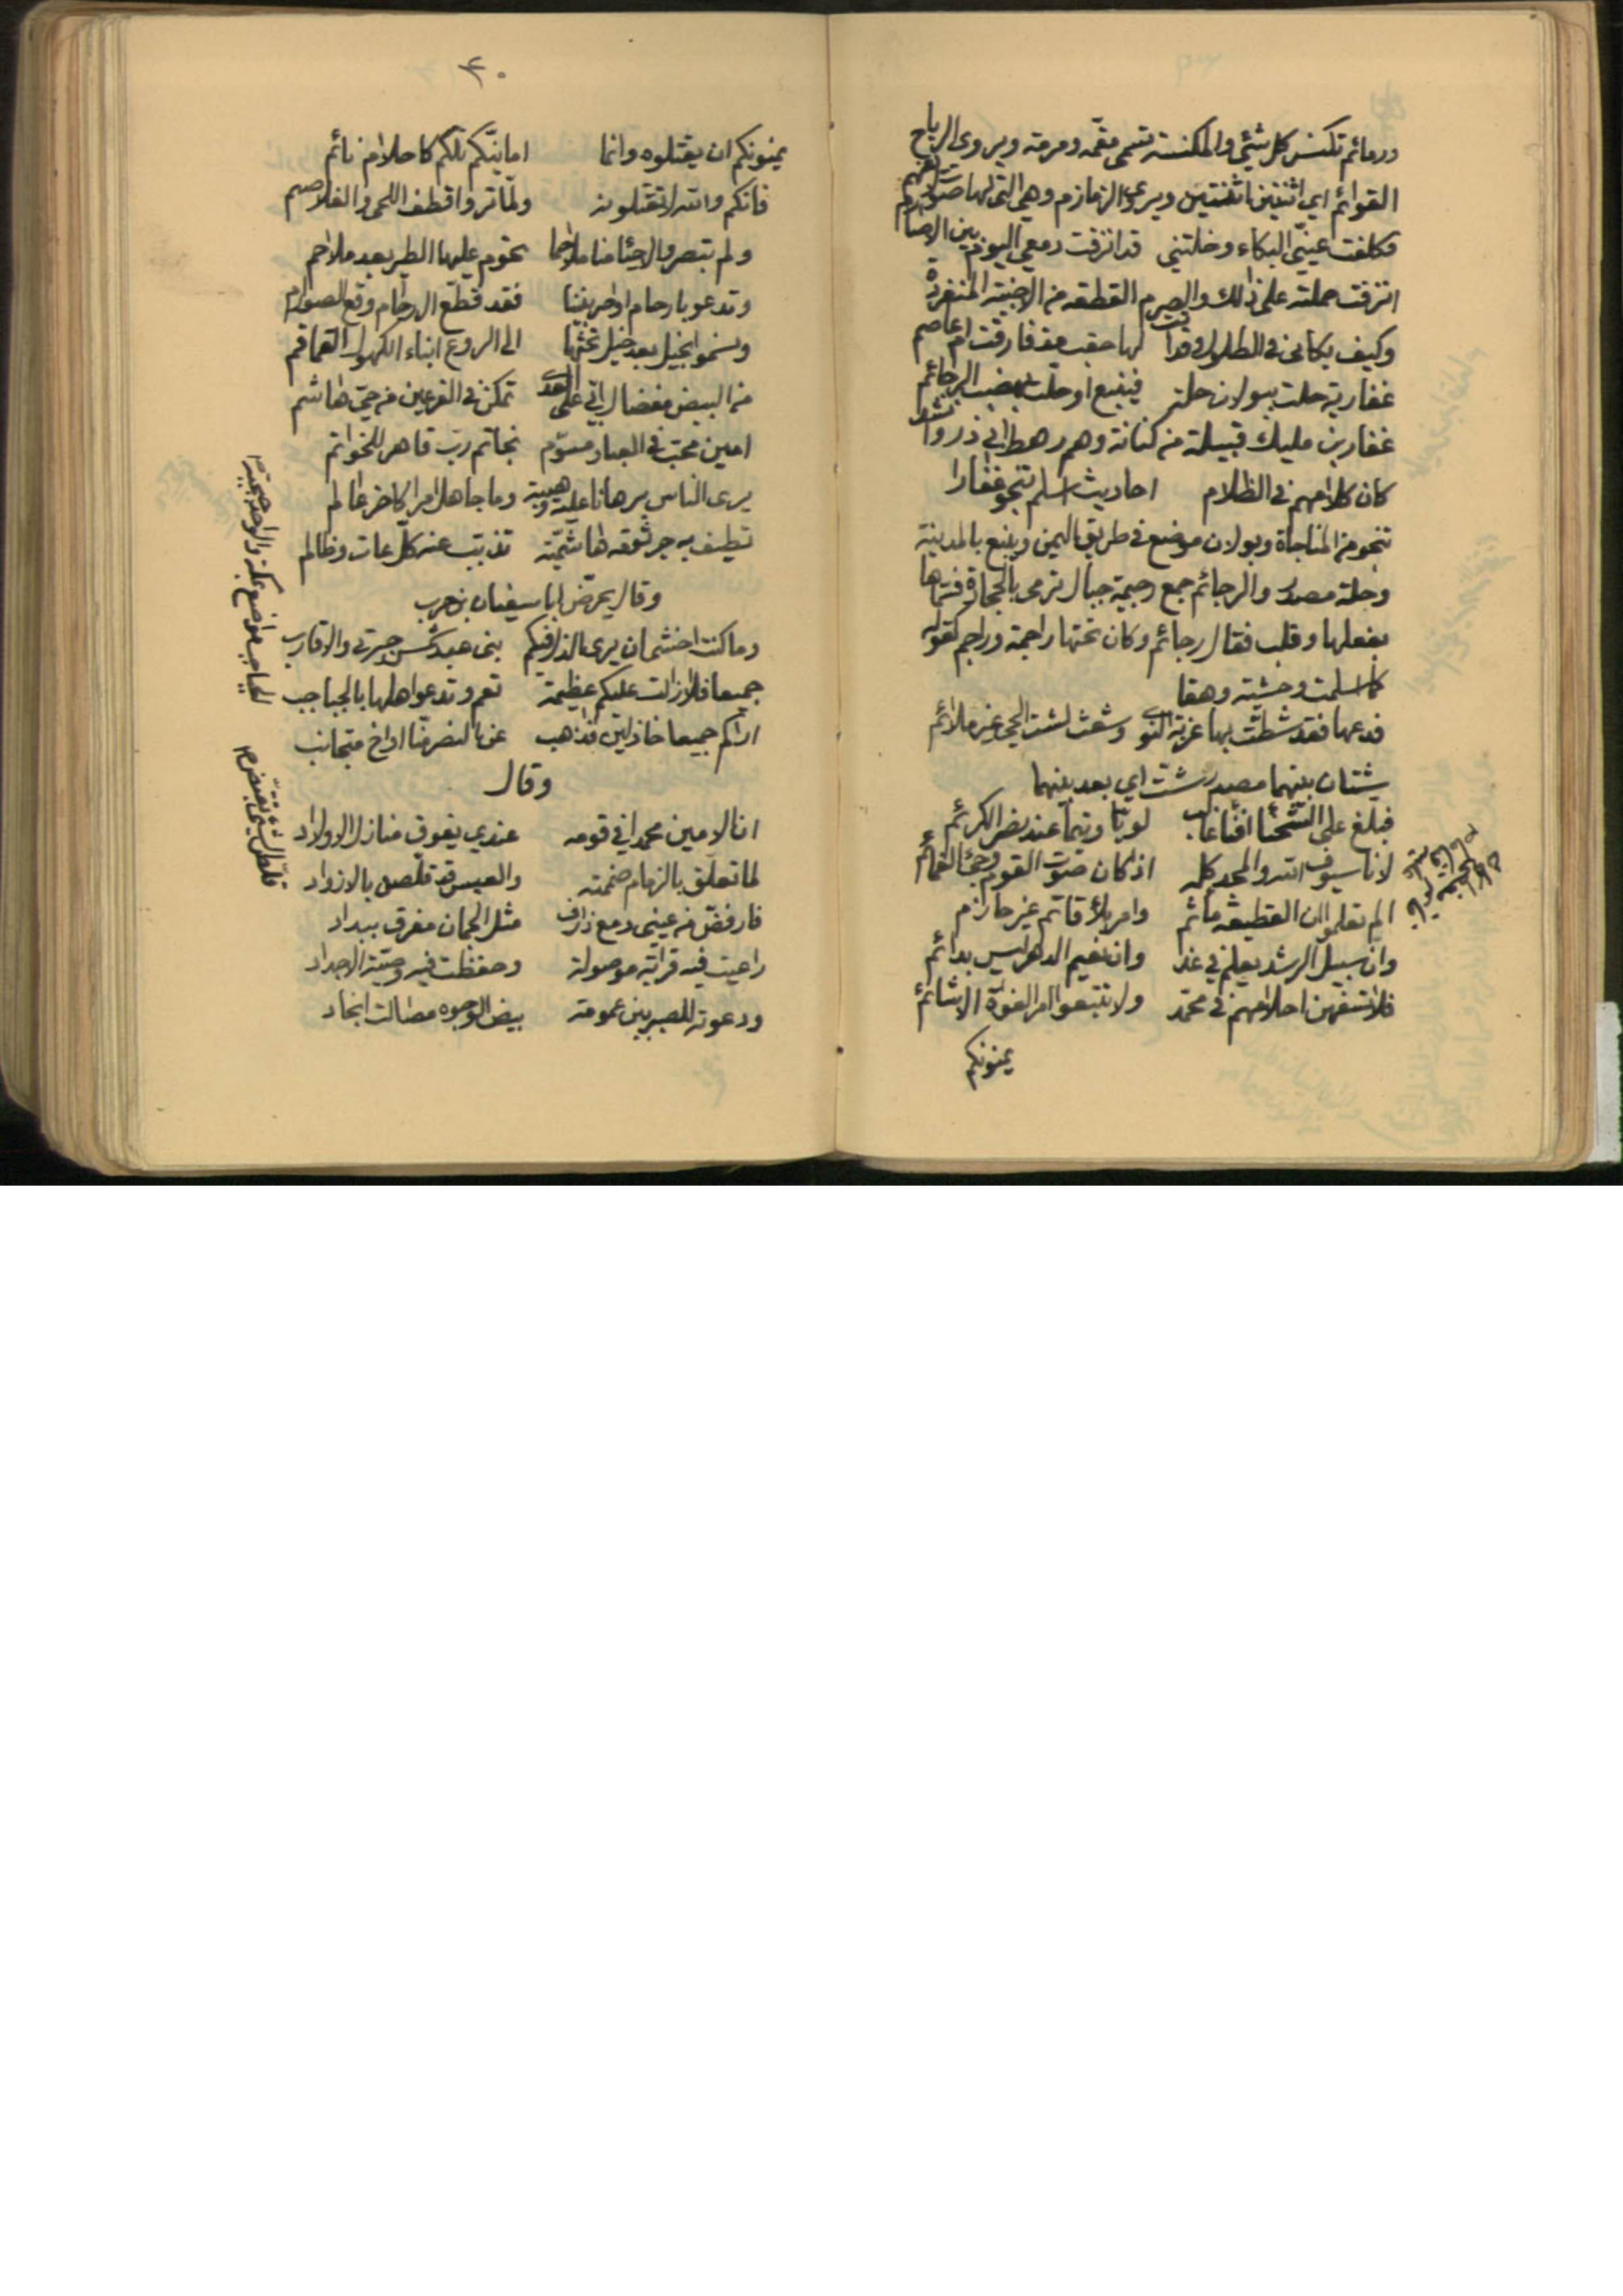 ورمائم تكنس كل شئ والمكنسة تسمى مقمة ومرمة ويروى الرياح
القوائم اي اثنتين اثنتين ويروى الزمازم وهي التي لها صوت
فكلفت عينيّ البكاء وخلتني قد انزفت دمعي اليوم بين الاصارم
انزفت حملته على ذلك والصرم القطعة من الابنية المنفردة
وكيف بكائى في الطلول وقد اتت لها حقب مذ فارقت ام عاصم
غفارية حلت ببولان حلة فينبع او حلت بهضب الرجائم
غفار بن مليك قبيلة من كنانة وهم رهط ابي ذر وانشد
كان كلامهم في الظلام احاديث اسلم تنجو غفارا
تنجو من المناجاة وبولان موضع في طريق اليمن وينبع بالمدينة
وحلة مصدر والرجائم جمع رجيمة جبال ترمى بالحجارة فسماها
بفعلها وقلب فقال رجائم وكان تحتها راجمة وراجم كقوله
كما اسلمت وحشية وهقا
فدعها فقد شطت بها غربة النوى وشعث لشت الحي غير ملائم
شتان بينهما مصدر شت اي بعد بينهما
فبلغ على الشحنا افناء غالب لويا وتيما عند نصر الكرائم
لانا سيوف الله والمجد كله اذا كان صوت القوم وحي الغمائم
الم تعلموا ان القطيعة مأثم وامر بلاء قاتم غير حازم
وان سبيل الرشد يعلم في غد وان نعيم الدهر ليس بدائم
فلا تسفهن احلامهم في محمد ولا تتبعوا امر الغواة الاشائم
يمنونكم
٤٠
يمنونكم ان يقتلوه وانما امانيكم تلكم كاحلام نائم
فانكم والله لا تقتلونه ولما تروا قطف اللحى والغلاصم
ولم تبصروا الاحياء منا ملاحما تحوم عليها الطير بعد ملاحم
وتدعو بارحام اواصر بيننا فقد قطع الارحام وقع الصوارم
ونسمو بخيل بعد خيل نحثها الى الروع ابناء الكهول القماقم
من البيض مفضال ابي على العدى تمكن في الفرعين من حي هاشم
امين محب في العباد مسوم بخاتم رب قاهر للخواتم
يرى الناس برهانا عليه وهيبة وما جاهل امرا كاخر عالم
تطيف به جرثومة هاشمية تذبب عنه كل عات وظالم
وقال يحرض ابا سفيان بن حرب
وما كنت اخشى ان يرى الذل فيكم بنى عبد شمس جيرتي والاقارب
جميعا فلا زالت عليكم عظيمة تعم وتدعو اهلها بالجباجب
اراكم جميعا خاذلين فذاهب عن النصر منا او اخ متجانب
وقال
ان الامين محمدا في قومه عندي يفوق منازل الاولاد
لما تعلق بالزمام ضممته والعيس قد قلصن بالازواد
فارفض من عيني دمع ذارف مثل الجمان مفرق ببداد
راعيت فيه قرابة موصولة وحفظت فيه وصية الاجداد
ودعوته للسير بين عمومة بيض الوجوه مصالت انجاد
الجباجب مواضع بمكة والواحد جبجبة